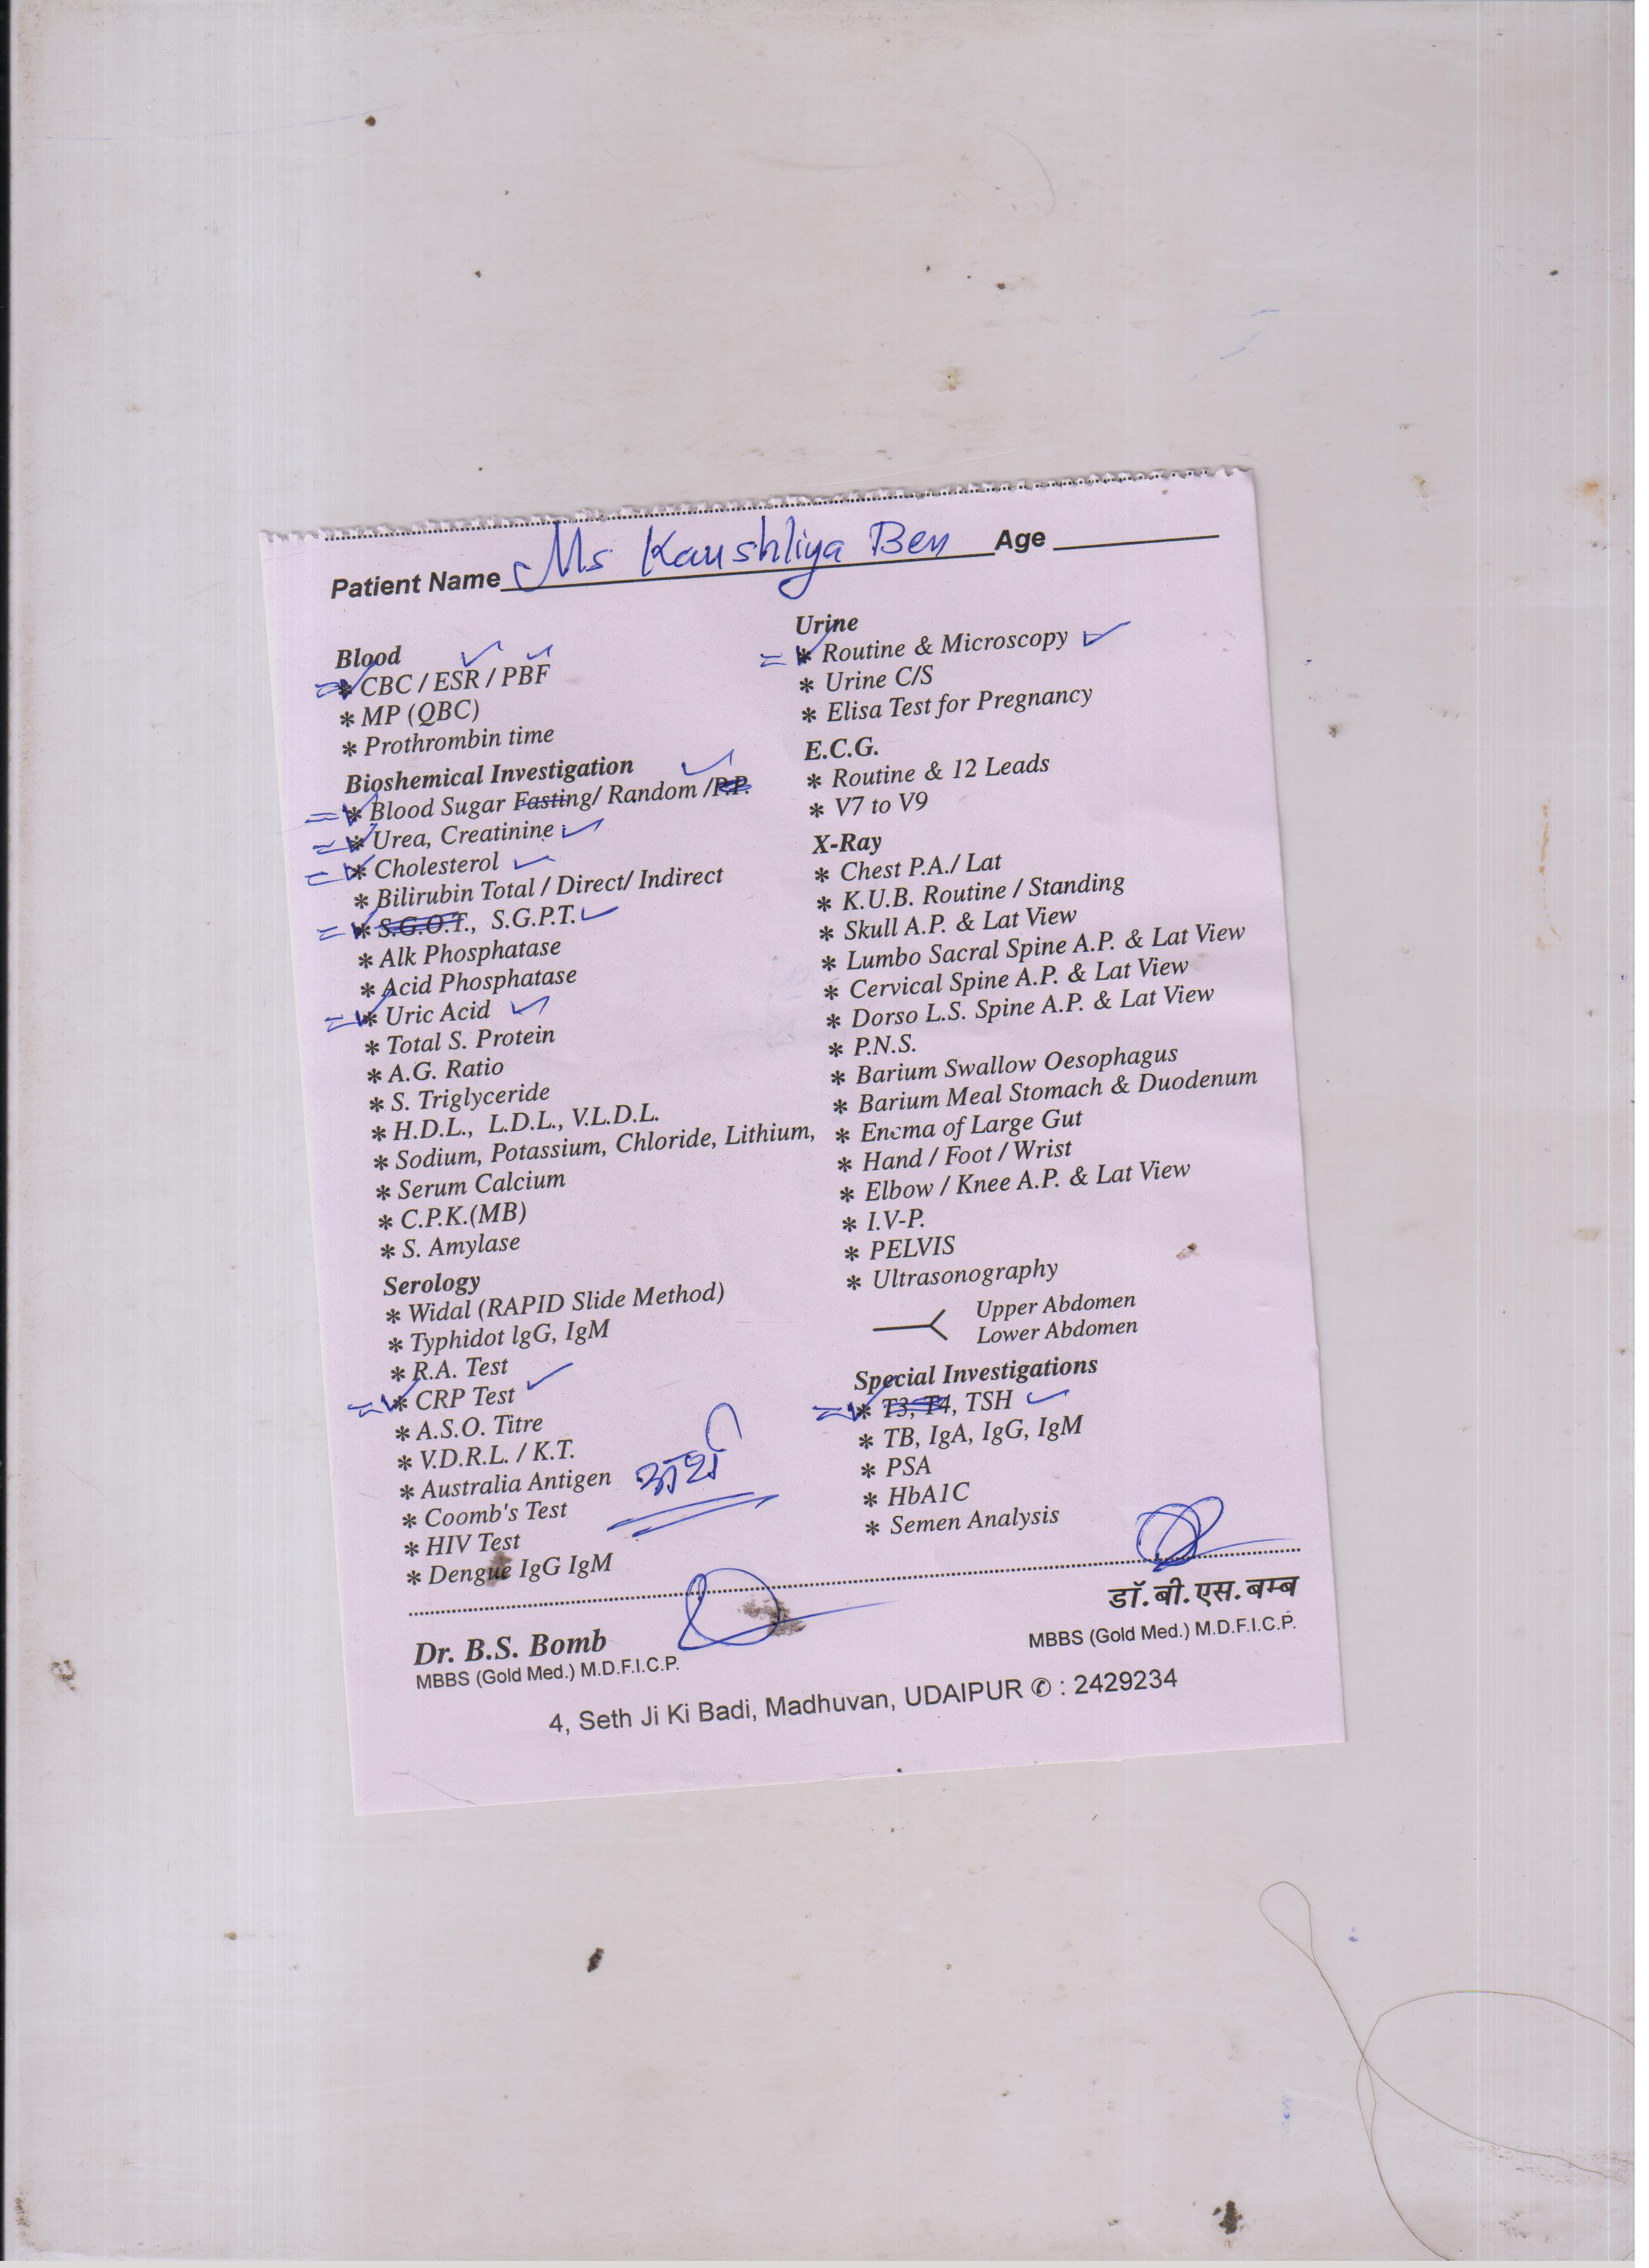 Patient Name Ms Kaushliya Ben Age
Blood
* CBC / ESR / PBF
* MP (QBC)
* Prothrombin time
Bioshemical Investigation
* Blood Sugar Fasting/ Random /P.P.
* Urea, Creatinine
* Cholesterol
* Bilirubin Total / Direct/ Indirect
* S.G.O.T., S.G.P.T.
* Alk Phosphatase
* Acid Phosphatase
* Uric Acid
* Total S. Protein
* A.G. Ratio
* S. Triglyceride
* H.D.L., L.D.L., V.L.D.L.
* Sodium, Potassium, Chloride, Lithium,
* Serum Calcium
* C.P.K.(MB)
* S. Amylase
Serology
* Widal (RAPID Slide Method)
* Typhidot lgG, IgM
* R.A. Test
* CRP Test
* A.S.O. Titre
* V.D.R.L. / K.T.
* Australia Antigen
* Coomb's Test
* HIV Test
* Dengue IgG IgM
Urine
* Routine & Microscopy
* Urine C/S
* Elisa Test for Pregnancy
E.C.G.
* Routine & 12 Leads
* V7 to V9
X-Ray
* Chest P.A./ Lat
* K.U.B. Routine / Standing
* Skull A.P. & Lat View
* Lumbo Sacral Spine A.P. & Lat View
* Cervical Spine A.P. & Lat View
* Dorso L.S. Spine A.P. & Lat View
* P.N.S.
* Barium Swallow Oesophagus
* Barium Meal Stomach & Duodenum
* Enema of Large Gut
* Hand / Foot / Wrist
* Elbow / Knee A.P. & Lat View
* I.V-P.
* PELVIS
* Ultrasonography
Upper Abdomen
Lower Abdomen
Special Investigations
* T3, T4, TSH
* TB, IgA, IgG, IgM
* PSA
* HbA1C
* Semen Analysis
Dr. B.S. Bomb
MBBS (Gold Med.) M.D.F.I.C.P.
डॉ. बी. एस. बम्ब
MBBS (Gold Med.) M.D.F.I.C.P.
4, Seth Ji Ki Badi, Madhuvan, UDAIPUR ✆ : 2429234